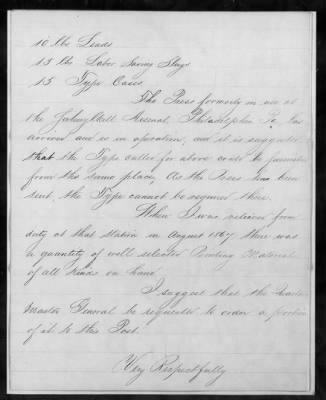 10 lbs Leads
15 lbs Labor Saving Slugs
15 Type Cases
The Press formerly in use at
the Schuylkill Arsenal, Philadelphia Pa. has
arrived and is in operation, and it is suggested
that the Type called for above could be furnished
from the same place, As the Press has been
sent, the Type cannot be required there.
When I was relieved from
duty at that Station in August 1867 there was
a quantity of well selected Printing Material
of all kinds on hand.
I suggest that the Quarter
Master General be requested to order a portion
of it to this Post.
Very Respectfully